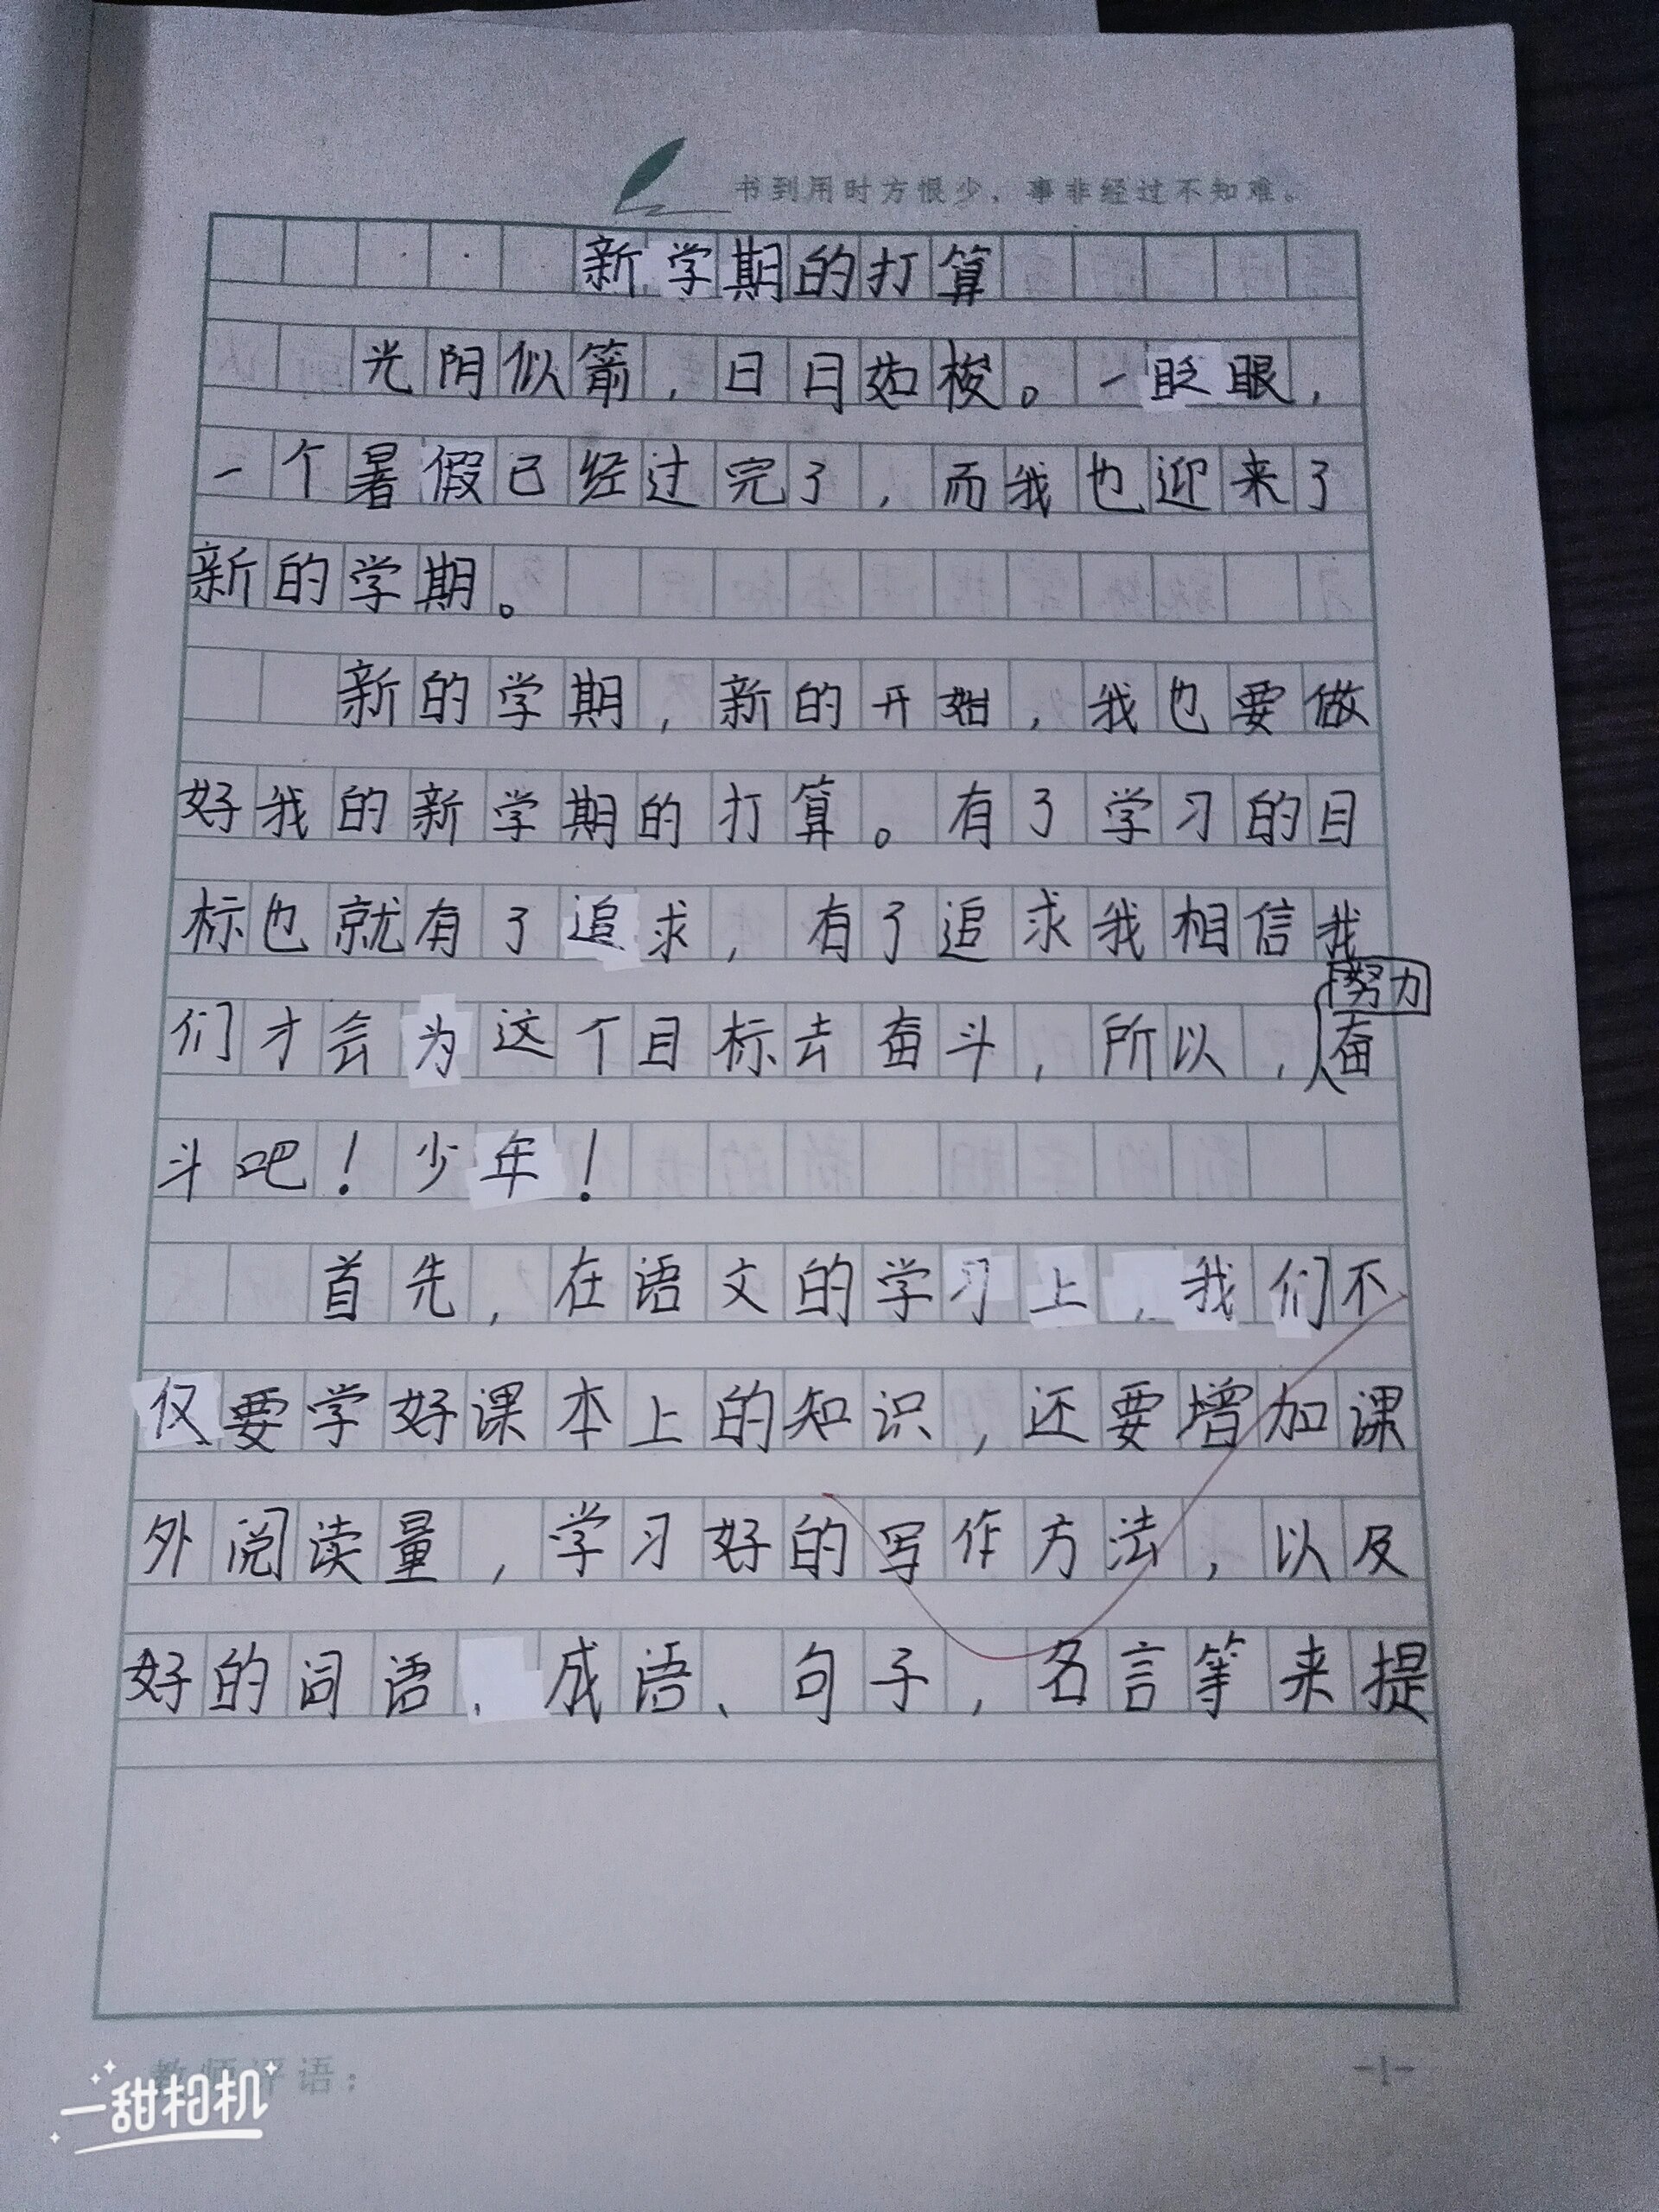 书到用时方恨少，事非经过不知难。
新学期的打算
光阴似箭，日月如梭。一眨眼，
一个暑假已经过完了，而我也迎来了
新的学期。
新的学期，新的开始，我也要做
好我的新学期的打算。有了学习的目
标也就有了追求，有了追求我相信我
们才会为这个目标去奋斗，所以，努力奋
斗吧！少年！
首先，在语文的学习上，我们不
仅要学好课本上的知识，还要增加课
外阅读量，学习好的写作方法，以及
好的词语、成语、句子，名言等来提
教师评语：
-1-
一甜相机